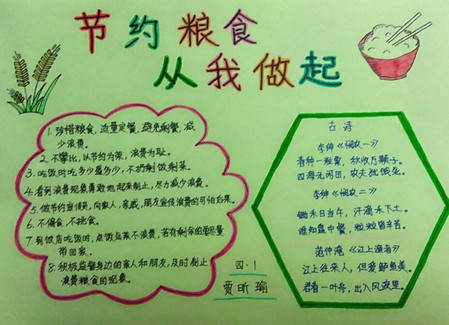 节约粮食
从我做起
1. 珍惜粮食,适量定餐,避免剩餐,减
少浪费。
2. 不攀比,以节约为荣,浪费为耻。
3. 吃饭时吃多少盛多少,不扔剩饭剩菜。
4. 看到浪费现象勇敢地起来制止,尽力减少浪费。
5. 做节约宣传员,向家人、亲戚、朋友宣传浪费的可怕后果。
6. 不偏食,不挑食。
7. 到饭店吃饭时,点饭点菜不浪费,若有剩余的要尽量
带回家。
8. 积极监督身边的亲人和朋友,及时制止
浪费粮食的现象。
四·1
贾昕瑜
古诗
李绅《悯农一》
春种一粒粟,秋收万颗子。
四海无闲田,农夫犹饿死。
李绅《悯农二》
锄禾日当午,汗滴禾下土。
谁知盘中餐,粒粒皆辛苦。
范仲淹《江上渔者》
江上往来人,但爱鲈鱼美。
君看一叶舟,出入风波里。